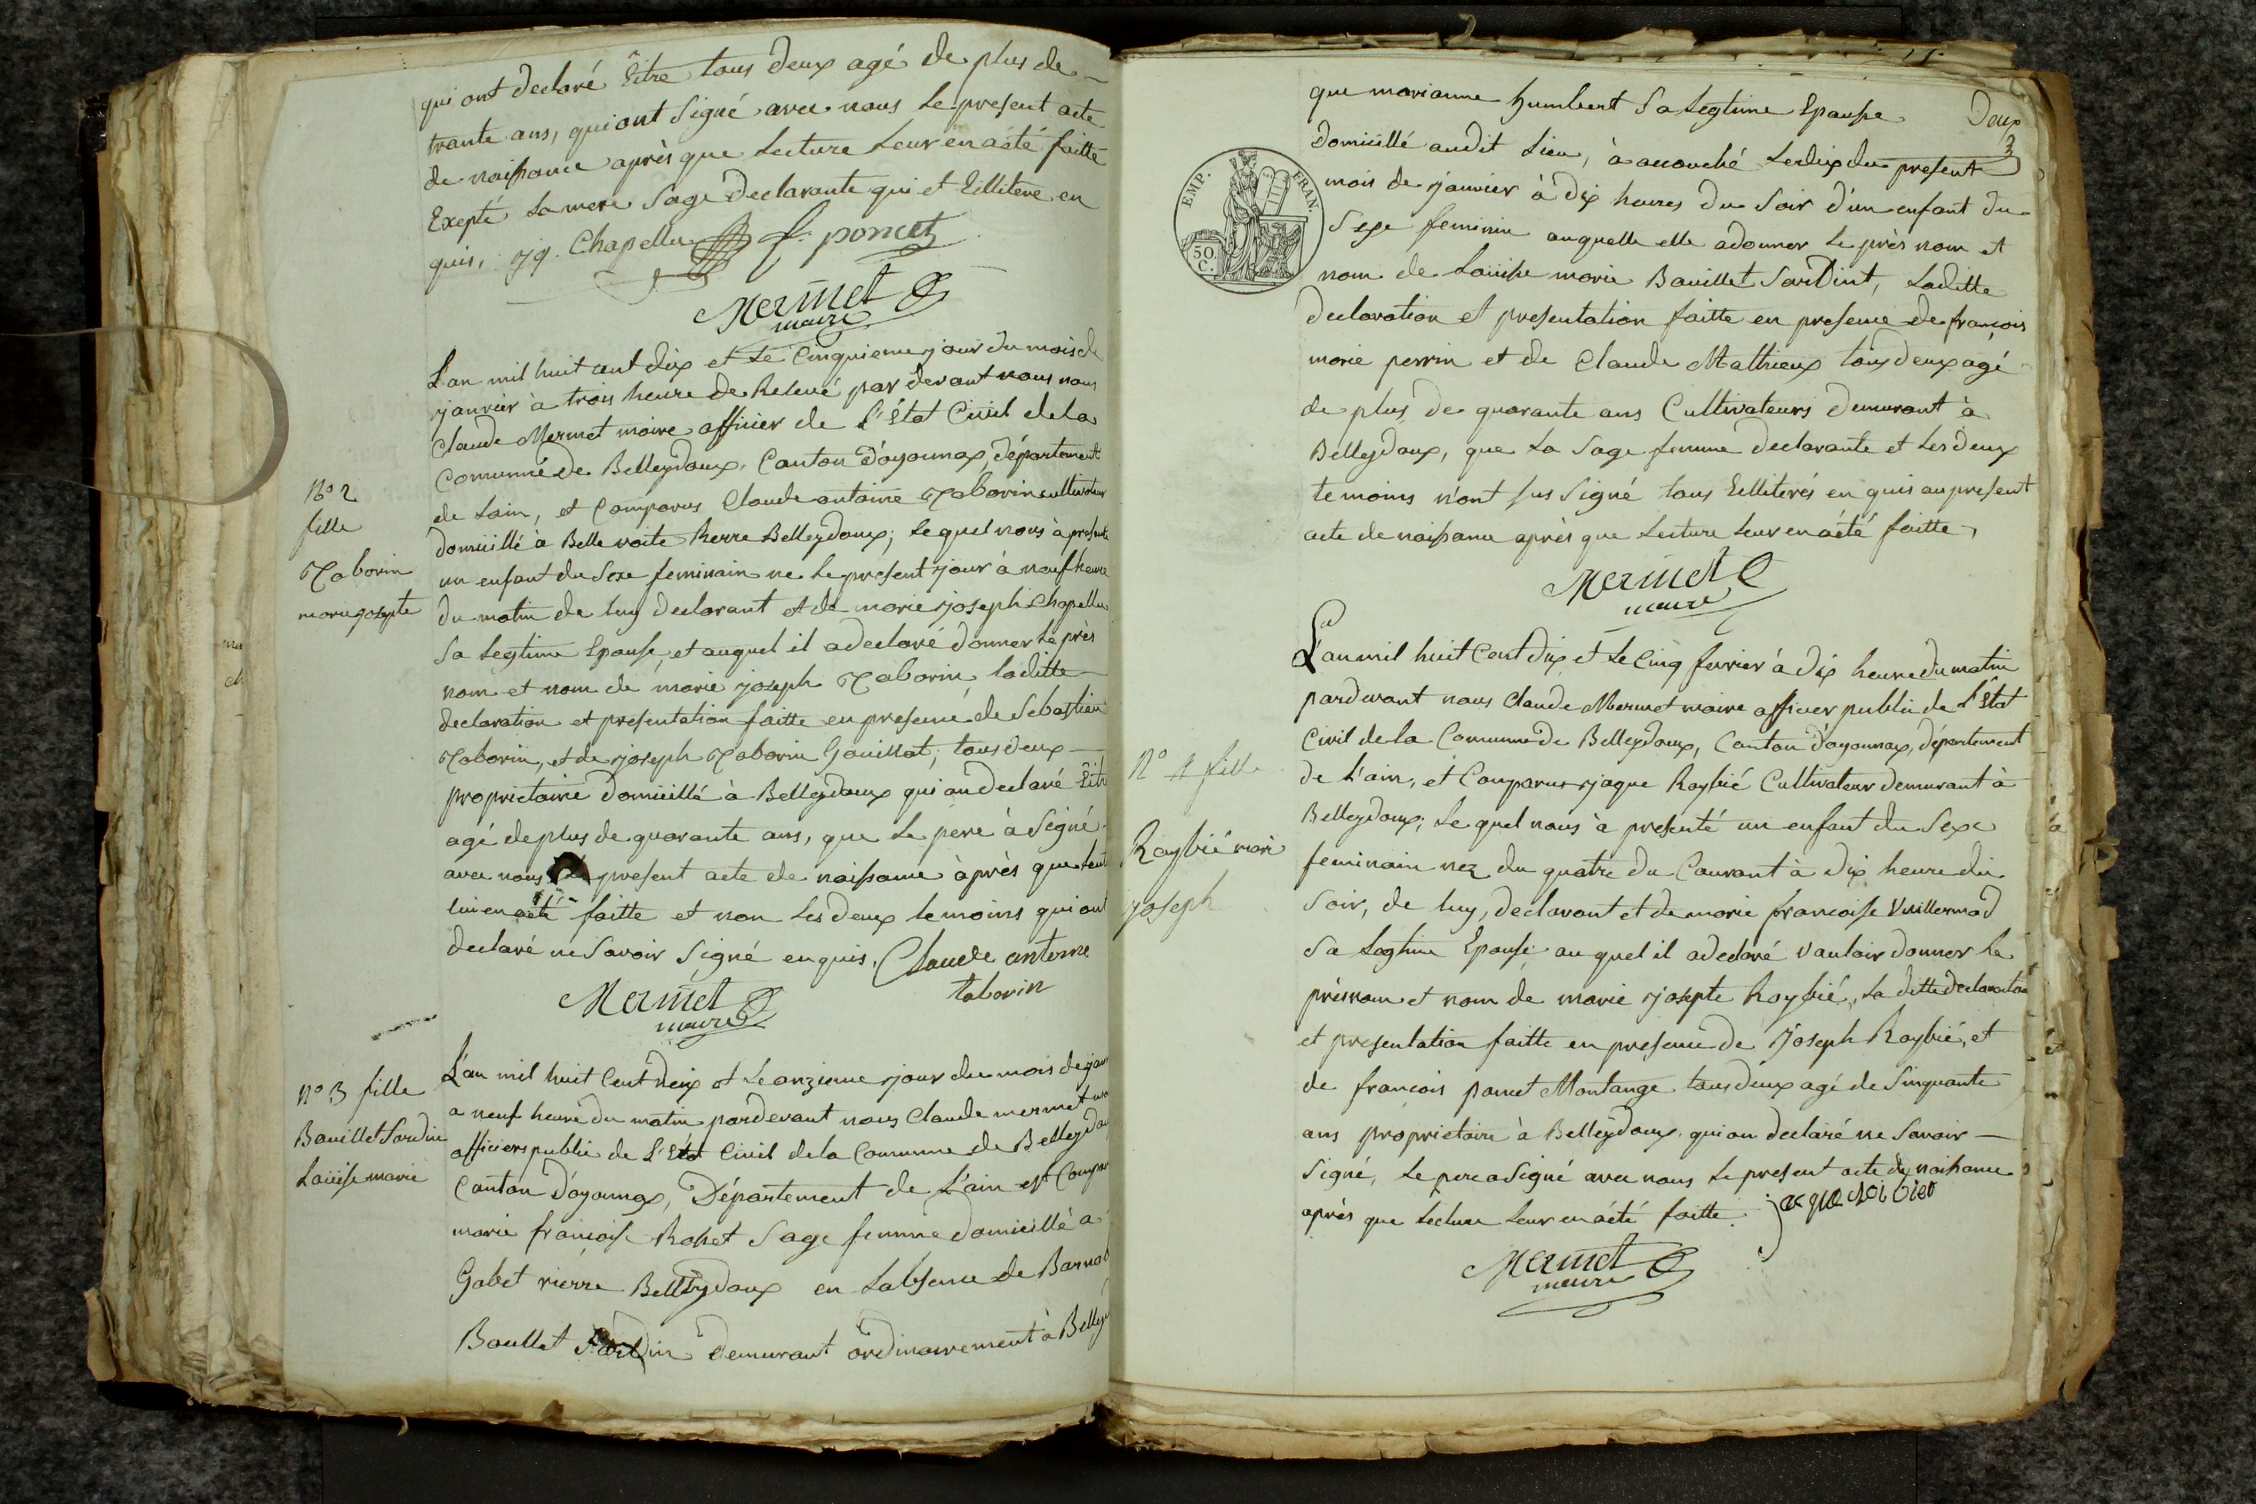 qui ont declaré Estre tous deux agé de plus de
trante ans, qui ont signé avec nous le present acte
de naissance après que lecture leur en a été faitte
Exepté la mere sage declarante qui et Eilliteré en
quis, jq. Chapellu f. poncet
Mermet
maire
L'an mil huit cent dix et le cinquieme jour du mois de
janvier à trois heure de Relevé par devant nous nous
Claude Mermet maire officier de l'État Civil de la
Comunne de Belleydoux, Canton d'oyonnax, département
de Lain, et Comparus Claude antoine Taborin cultivateur
domicillé à Belle voite Rierre Belleydoux; le quel nous à presenté
un enfant du sexe feminain ne le present jour à neuf heure
du matin de luy declarant et de marie joseph Chapellu
sa legtime Epouse, et auquel il a declaré donner le près
nom et nom de marie joseph Taborin, laditte
declaration et presentation faitte en presence de Sebastien
Taborin, et de joseph Taborin Gouillot; tous deux
proprietaire domicillé à Belleydoux qui on declaré Estre
agé de plus de quarante ans, que le pere à signé
avec nous le present acte de naissance après que lecture
lui en a été faitte et non les deux temoins qui ont
declaré ne savoir signé enquis. Claude antoine
taborin
Mermet
maire
No 2
fille
Taborin
marie josepte
L'an mil huit Cent dix et le onzieme jour du mois de janv
a neuf heure du matin pardevant nous Claude mermet
officiers public de L'État Civil de la Comunne de Belleydoux
Canton d'oyonnax, Département de L'ain est Compar
marie francoise Rohet sage femme domicillé a
Gobet rierre Belleydoux en labsence de Barnab
Boullet Sardin demurant ordinairement à Belleyd
No 3 fille
Bouillet Sardin
Laiiise marie
que marianne humbert sa legtime Epouse
Deux
3
domicillé audit Lieu, à accouché le dix du present
mois de janvier à dix heures du soir d'un enfant du
sexe feminin auquelle elle a donner le près nom et
nom de Laiiise marie Bouillet Sardint, Laditte
declaration et presentation faitte en presence de françois
marie perrin et de Claude Mathieux tous deux agé
de plus de quarante ans Cultivateurs demurant à
Belleydoux, que la sage femme declarante et les deux
temoins n'ont sus signé tous Eilliterés en quis au present
acte de naissance après que lecture leur en a été faitte,
EMP. FRAN.
50 C.
Mermet
maire
L'an mil huit Cent dix et le Cinq fevrier à dix heure du matin
pardevant nous Claude Mermet maire officier public de l'État
Civil de la Comunne de Belleydoux, Canton d'oyonnax, département
de L'ain, et Comparus jaque Raybié Cultivateur demurant à
Belleydoux; le quel nous à presenté un enfant du sexe
feminain nez du quatre du Courant à dix heure du
soir, de luy, declarant et de marie francoise Vuillermod
sa legtime Epouse au quel il a declaré vouloir donner le
prèsnom et nom de marie josepte Raybié, la ditte declaration
et presentation faitte en presence de Joseph Raybié, et
de francois poncet Montange tous deux agé de sinquante
ans proprietaire à Belleydoux qui on declaré ne savoir
signé, le pere a signé avec nous le present acte de naissance
après que lecture leur en a été faitte. jaque
Mermet
maire
No 4 fille
Raybié mari
joseph